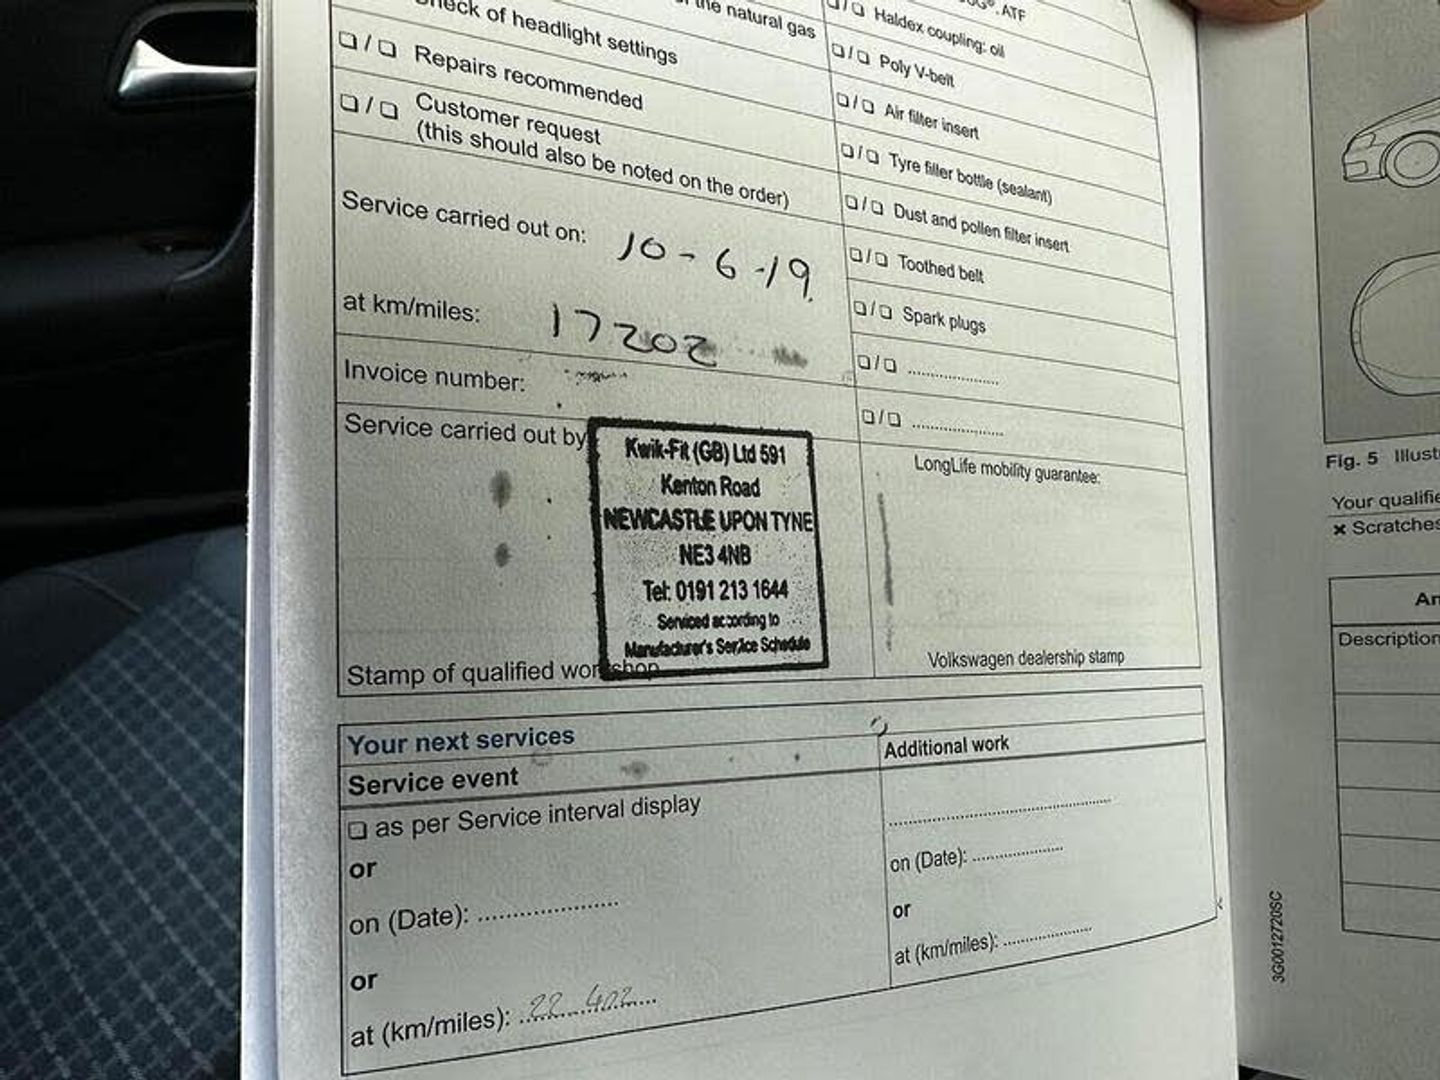 of the natural gas
Check of headlight settings
❏ / ❏ Repairs recommended
❏ / ❏ Customer request
(this should also be noted on the order)
Service carried out on: 10-6-19
at km/miles: 17202
Invoice number:
Service carried out by
Kwik-Fit (GB) Ltd 591
Kenton Road
NEWCASTLE UPON TYNE
NE3 4NB
Tel: 0191 213 1644
Serviced according to
Manufacturer's Service Schedule
Stamp of qualified workshop
ATF
❏ / ❏ Haldex coupling: oil
❏ / ❏ Poly V-belt
❏ / ❏ Air filter insert
❏ / ❏ Tyre filler bottle (sealant)
❏ / ❏ Dust and pollen filter insert
❏ / ❏ Toothed belt
❏ / ❏ Spark plugs
❏ / ❏ ....................
❏ / ❏ ....................
LongLife mobility guarantee:
Volkswagen dealership stamp
Your next services
Service event
❏ as per Service interval display
or
on (Date): ....................
or
at (km/miles): 22 402
Additional work
........................................
on (Date): ....................
or
at (km/miles): ....................
3G0012720SC
Fig. 5 Illust
Your qualifie
× Scratches
An
Description